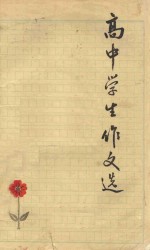 高中学生作文选